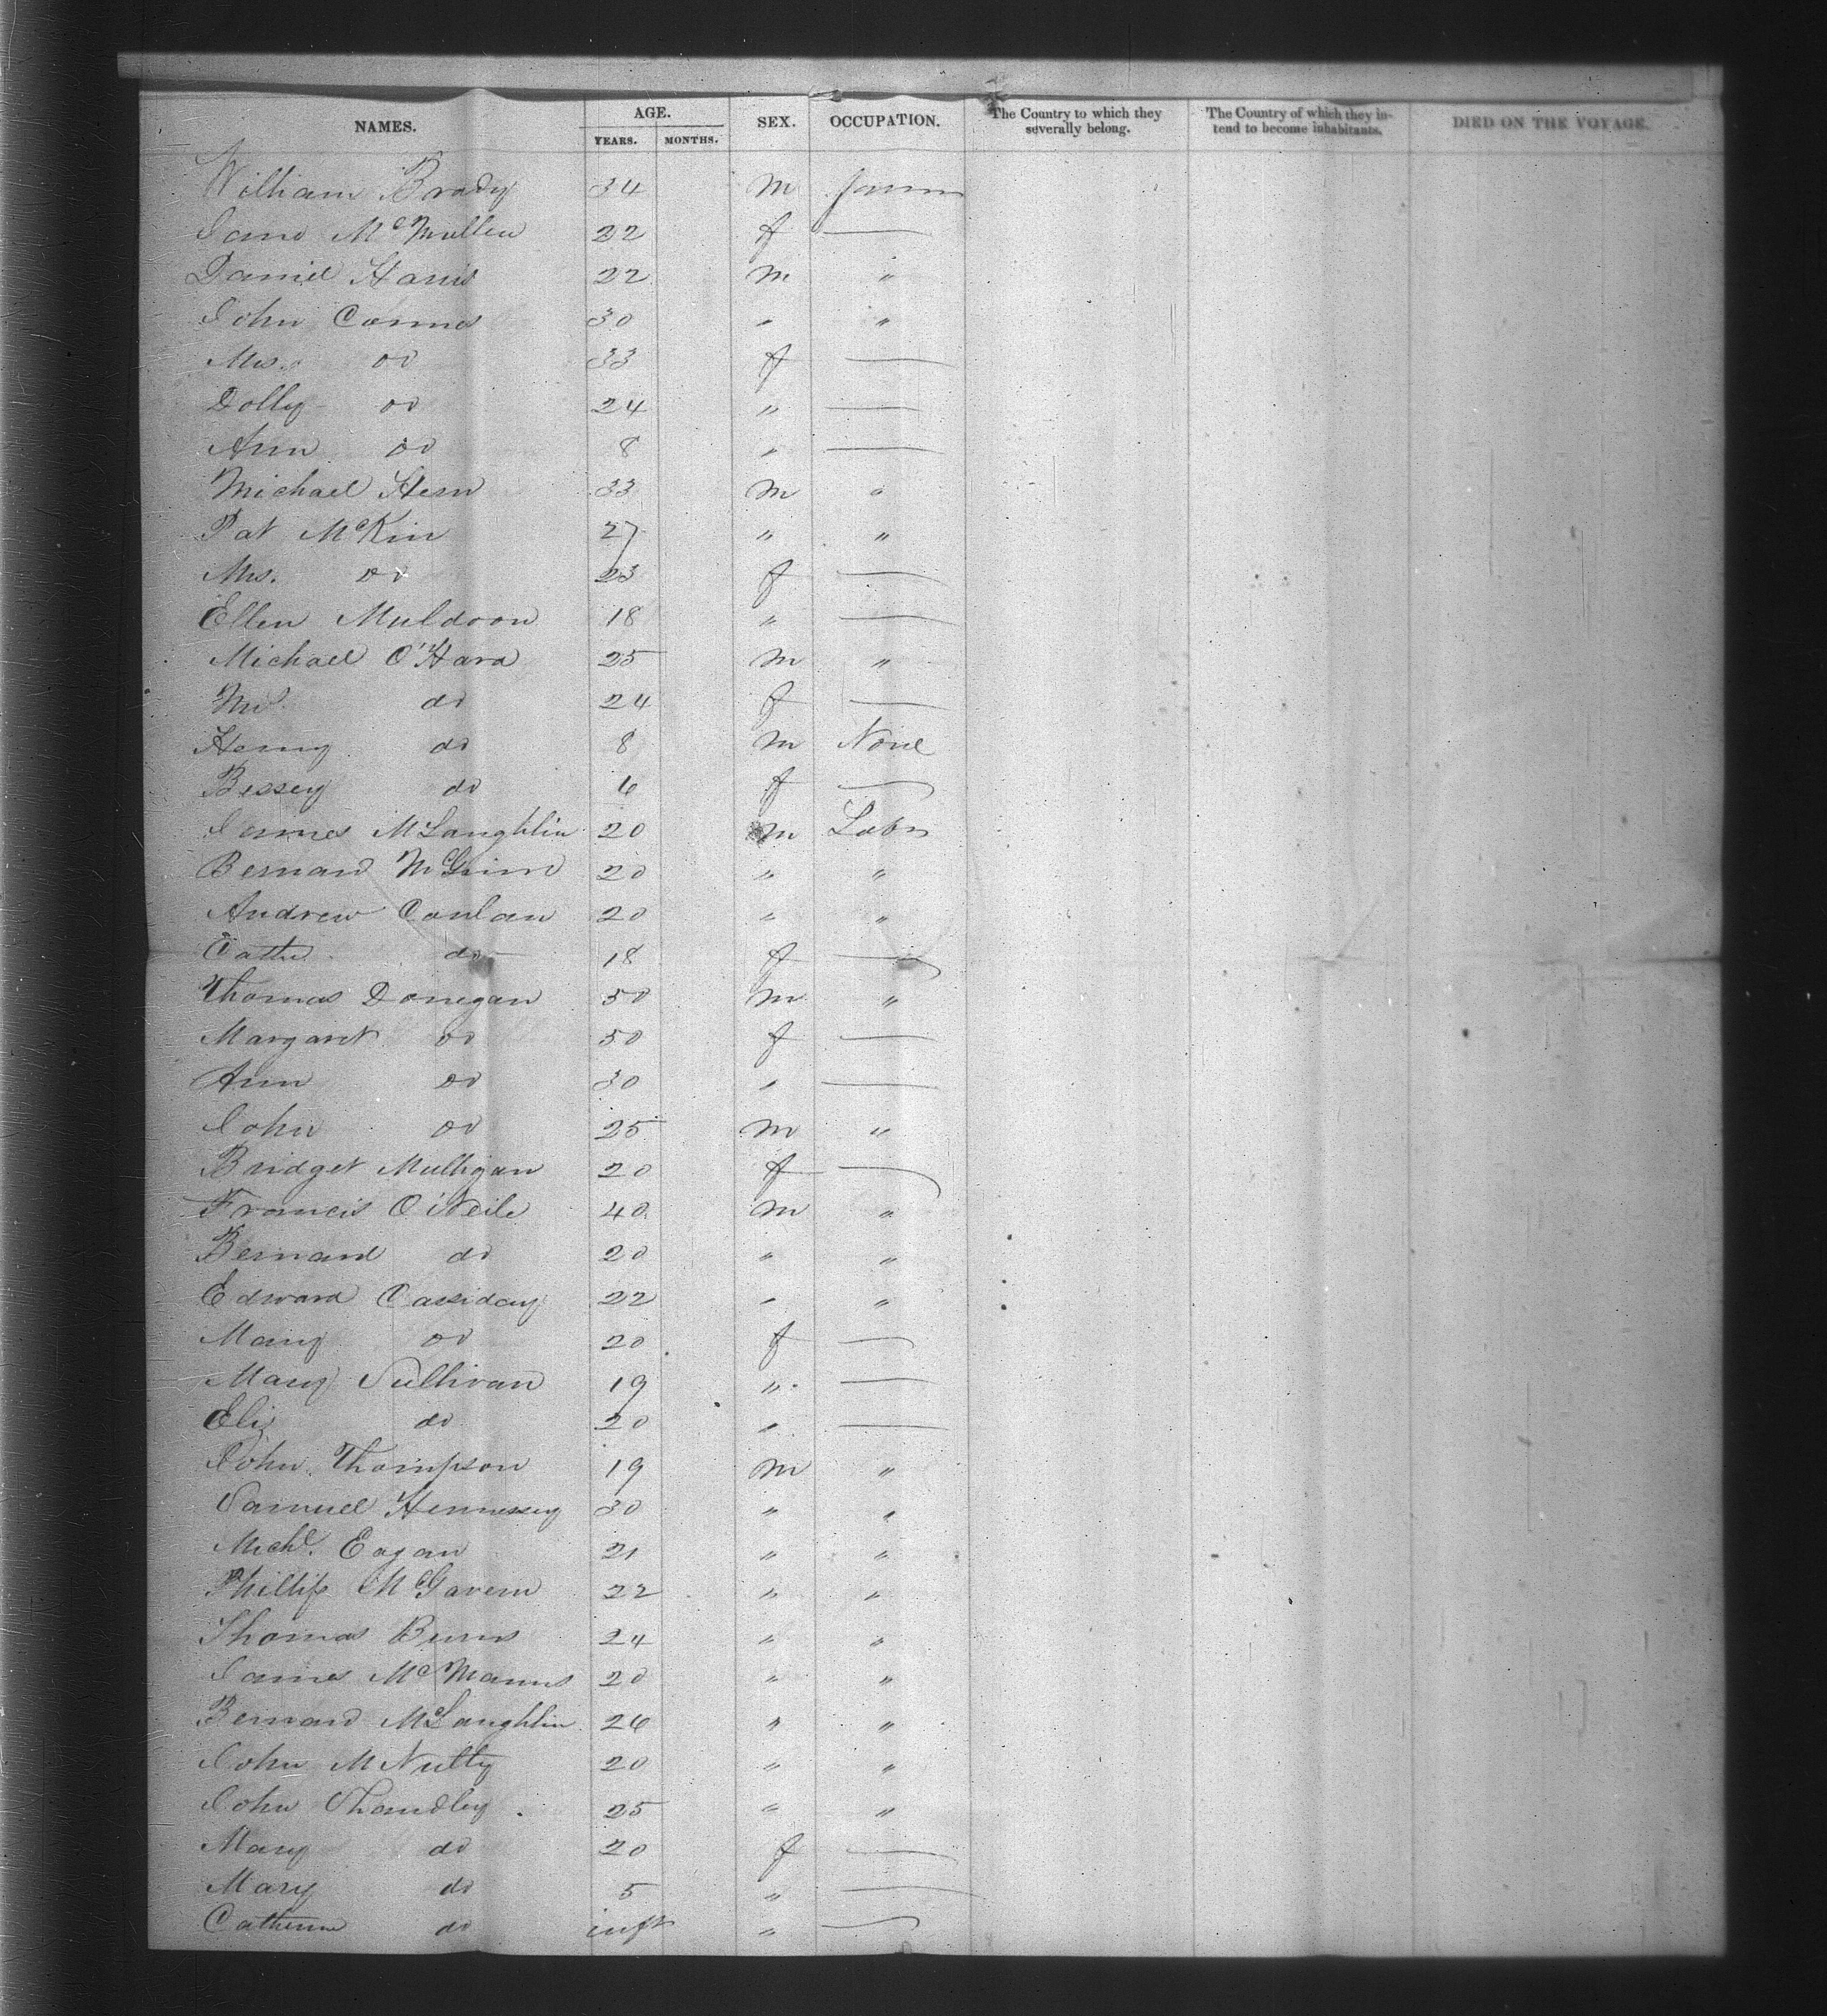 NAMES. AGE. YEARS. MONTHS. SEX. OCCUPATION. The Country to which they severally belong. The Country of which they intend to become inhabitants. DIED ON THE VOYAGE.
William Brady 34 m
Jane McMullen 22 f —
Daniel Harris 22 m "
John Connes 30 " "
Mrs. do 33 f —
Dolly do 24 " —
Ann do 8 " —
Michael Hern 33 m "
Pat McKin 27 " "
Mrs. do 23 f —
Ellen Muldoon 18 " —
Michael O'Hara 25 m "
Mrs. do 24 f —
Henry do 8 m None
Bessey do 6 f —
James McLaughlin 20 m Labr
Bernard 20 " "
Andrew Conlan 20 " "
Cathe do 18 f —
Thomas Donegan 50 m "
Margaret do 50 f —
Ann do 30 " —
John do 25 m "
Bridget Mulligan 20 f —
Francis O'Neile 40 m "
Bernard do 20 " "
Edward Cassiday 22 " "
Mary do 20 f —
Mary Sullivan 19 " —
Eliz do 20 " —
John Thompson 19 m "
Samuel Hennessey 30 " "
Michl. Eagan 21 " "
Phillip McGavern 22 " "
Thomas Burns 24 " "
James McManus 20 " "
Bernard McLaughlin 26 " "
John McNulty 20 " "
John 25 " "
Mary do 20 f —
Mary do 5 " —
Catherine do inft " —